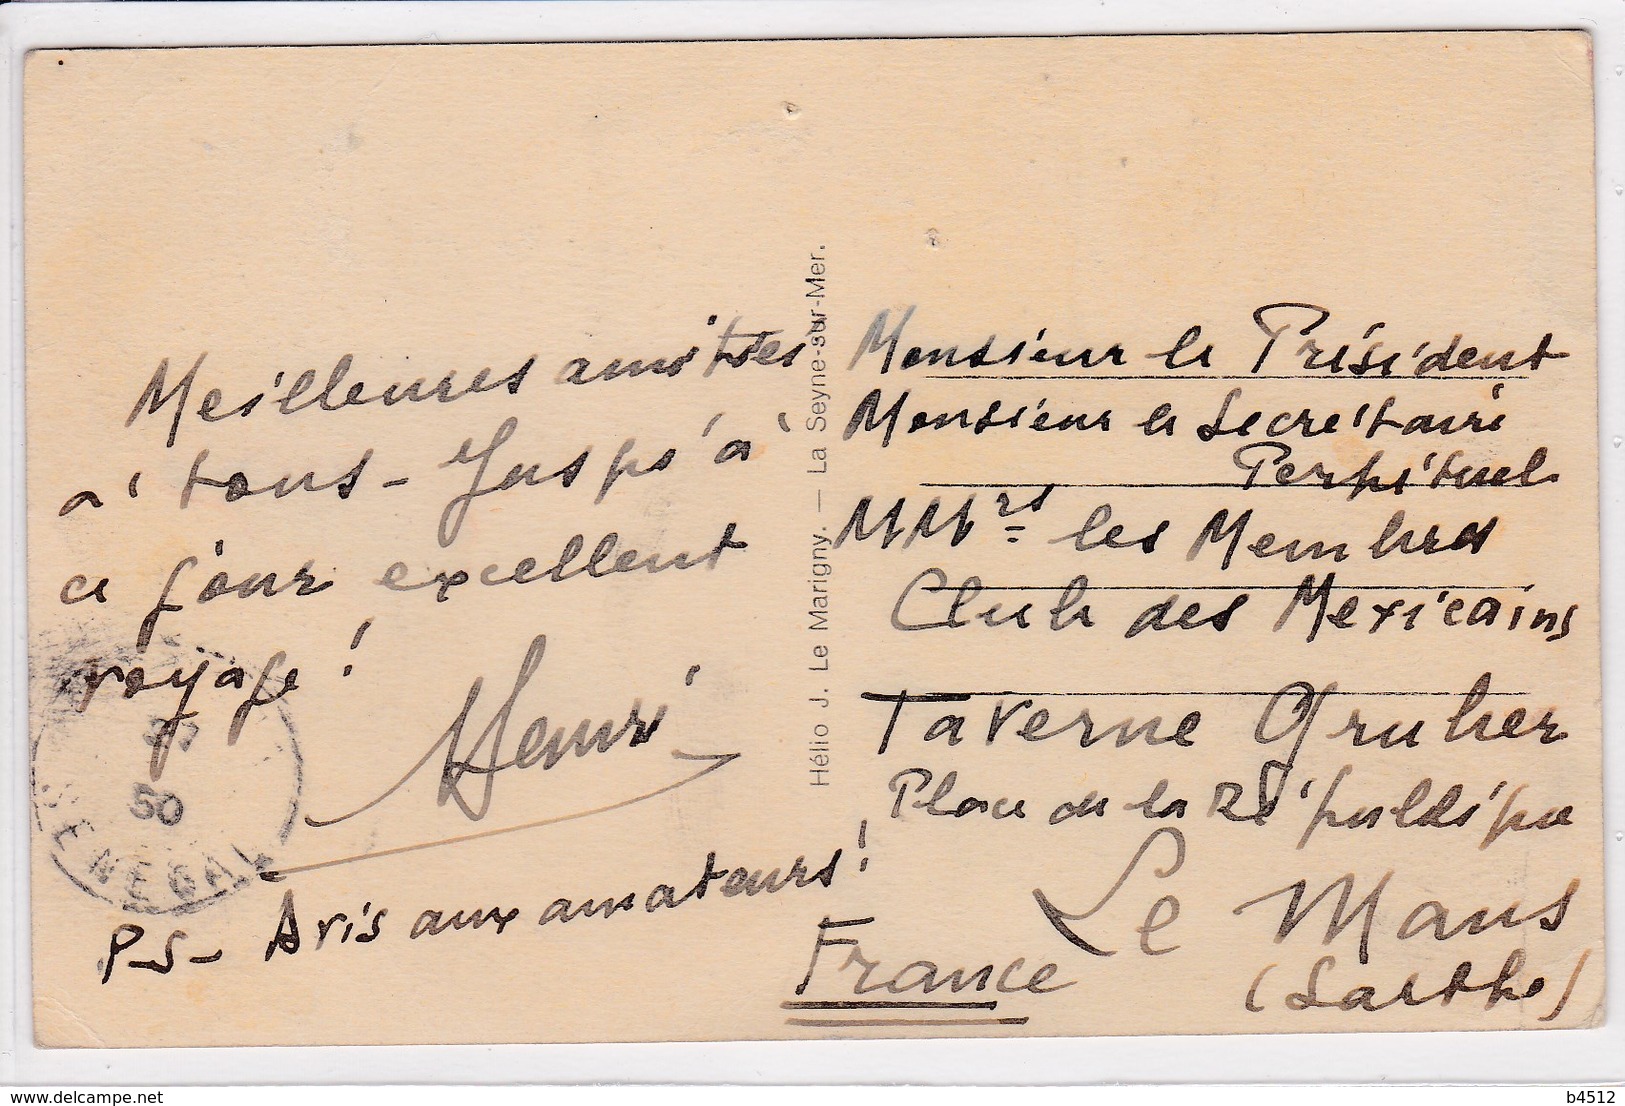 Meilleures amitiés
à tous - Jusqu'à
ce jour excellent
voyage !
Henri
P-S- Avis aux amateurs !
50
SENEGAL
Hélio J. Le Marigny. — La Seyne-sur-Mer.
Monsieur le Président
Monsieur le Secrétaire
Perpétuel
MMrs les Membres
Club des Mexicains
Taverne Gruber
Place de la République
Le Mans
(Sarthe)
France
delcampe.net
b4512